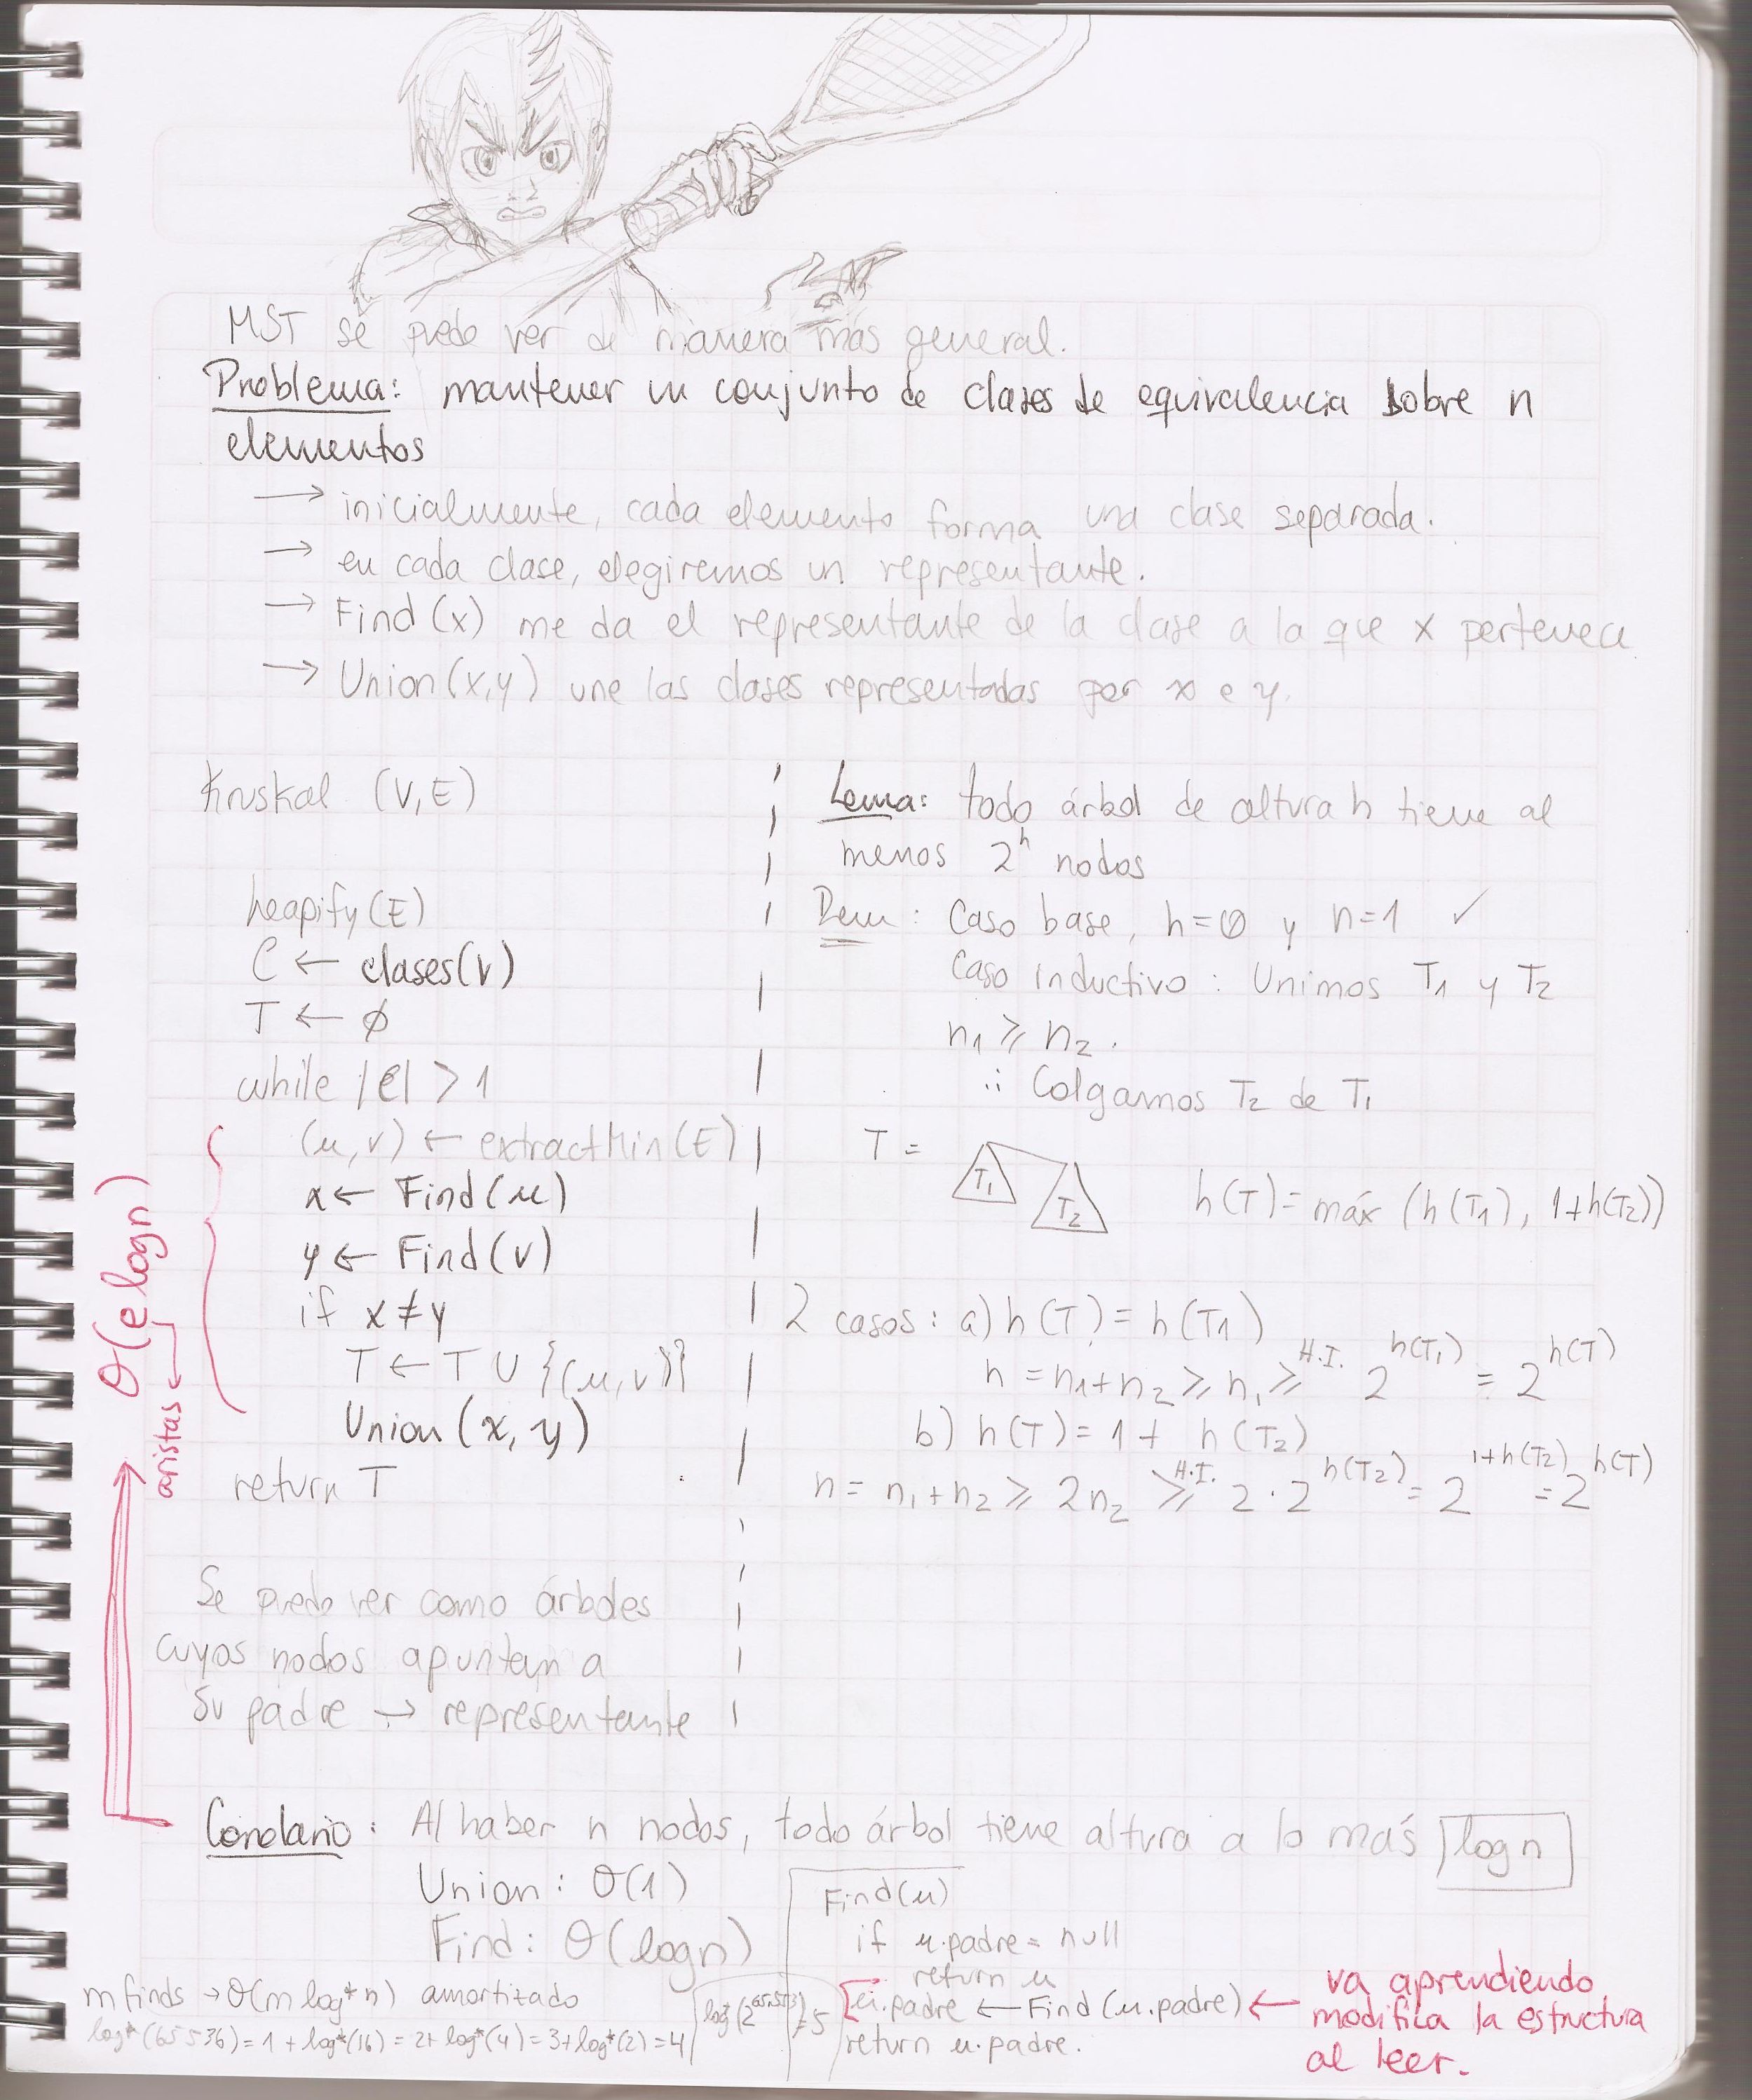 MST se puede ver de manera más general.
Problema: mantener un conjunto de clases de equivalencia sobre n
elementos
→ inicialmente, cada elemento forma una clase separada.
→ en cada clase, elegiremos un representante.
→ Find (x) me da el representante de la clase a la que x pertenece
→ Union (x,y) une las clases representadas por x e y.
Kruskal (V,E)
heapify(E)
C ← clases(V)
T ← ∅
while |C| > 1
(u,v) ← extractMin(E)
x ← Find(u)
y ← Find(v)
if x ≠ y
T ← T ∪ {(u,v)}
Union (x, y)
return T
Θ(e log n)
aristas ←
Se puede ver como árboles
cuyos nodos apuntan a
su padre → representante
Lema: todo árbol de altura h tiene al
menos 2^h nodos
Dem: Caso base, h=0 y n=1 ✓
Caso inductivo: Unimos T1 y T2
n1 ⩾ n2.
∴ Colgamos T2 de T1
T =
T1
T2
h(T) = máx (h(T1), 1+h(T2))
2 casos: a) h(T) = h(T1)
n = n1+n2 ⩾ n1 ⩾^H.I. 2^h(T1) = 2^h(T)
b) h(T) = 1 + h(T2)
n = n1+n2 ⩾ 2n2 ⩾^H.I. 2·2^h(T2) = 2^1+h(T2) = 2^h(T)
Corolario: Al haber n nodos, todo árbol tiene altura a lo más log n
Union: Θ(1)
Find: Θ(log n)
m finds → Θ(m log* n) amortizado
log*(65536) = 1 + log*(16) = 2 + log*(4) = 3 + log*(2) = 4
Find(u)
if u.padre = null
return u
u.padre ← Find (u.padre) ←
return u.padre.
va aprendiendo
modifica la estructura
al leer.